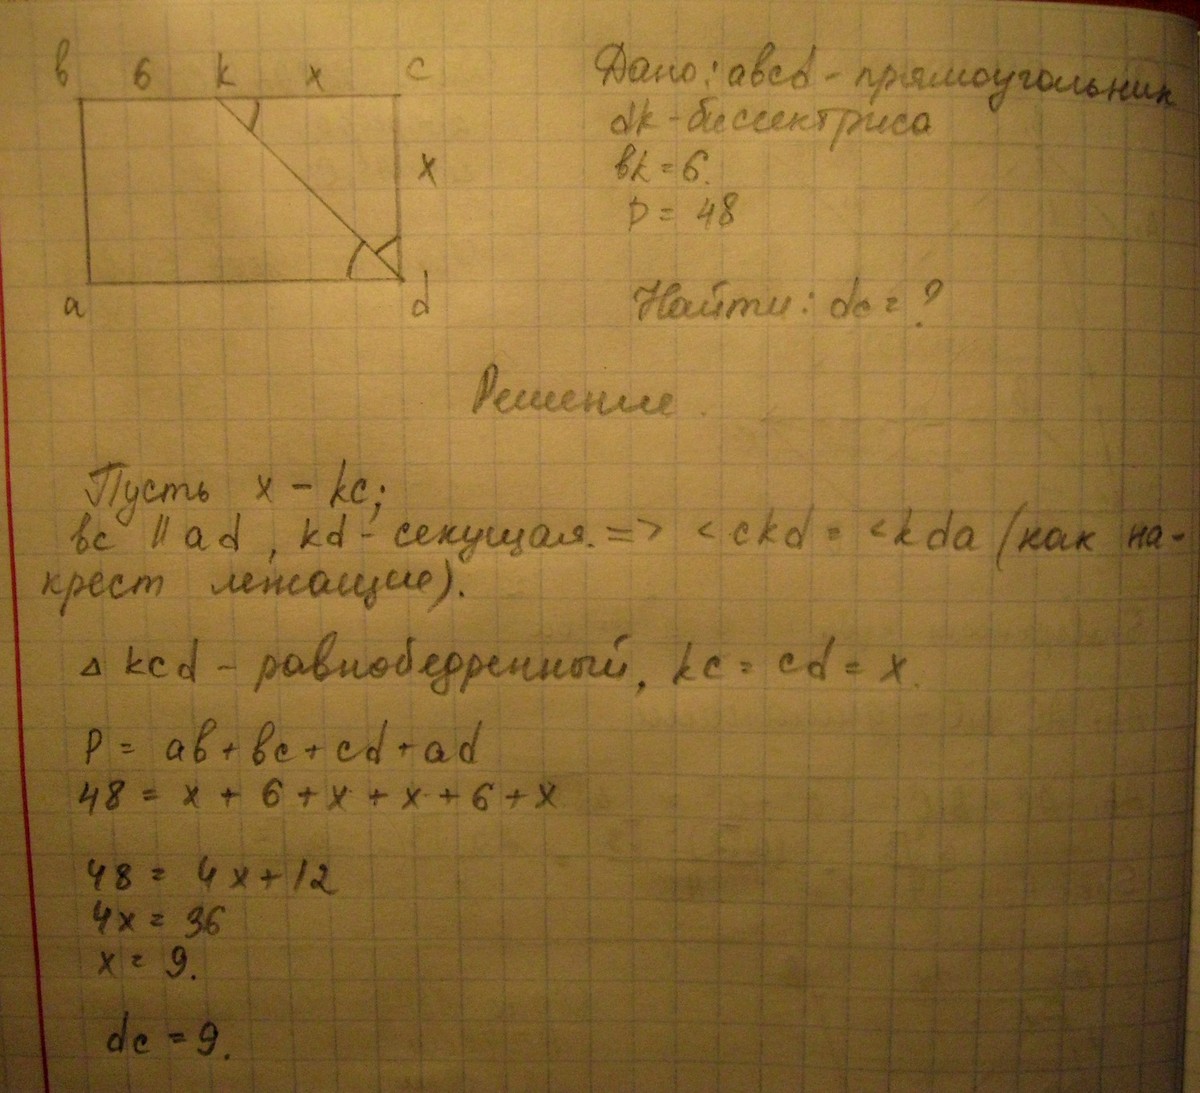 в 6 k x c
Дано: авсd - прямоугольник
dk - биссектриса
вk = 6.
x
P = 48
a d
Найти: dc = ?
Решение.
Пусть x - kc;
вс || ad, kd - секущая. => <ckd = <kda (как на-
крест лежащие).
△ kcd - равнобедренный, kc = cd = x.
P = ав + вс + cd + ad
48 = x + 6 + x + x + 6 + x
48 = 4x + 12
4x = 36
x = 9.
dc = 9.